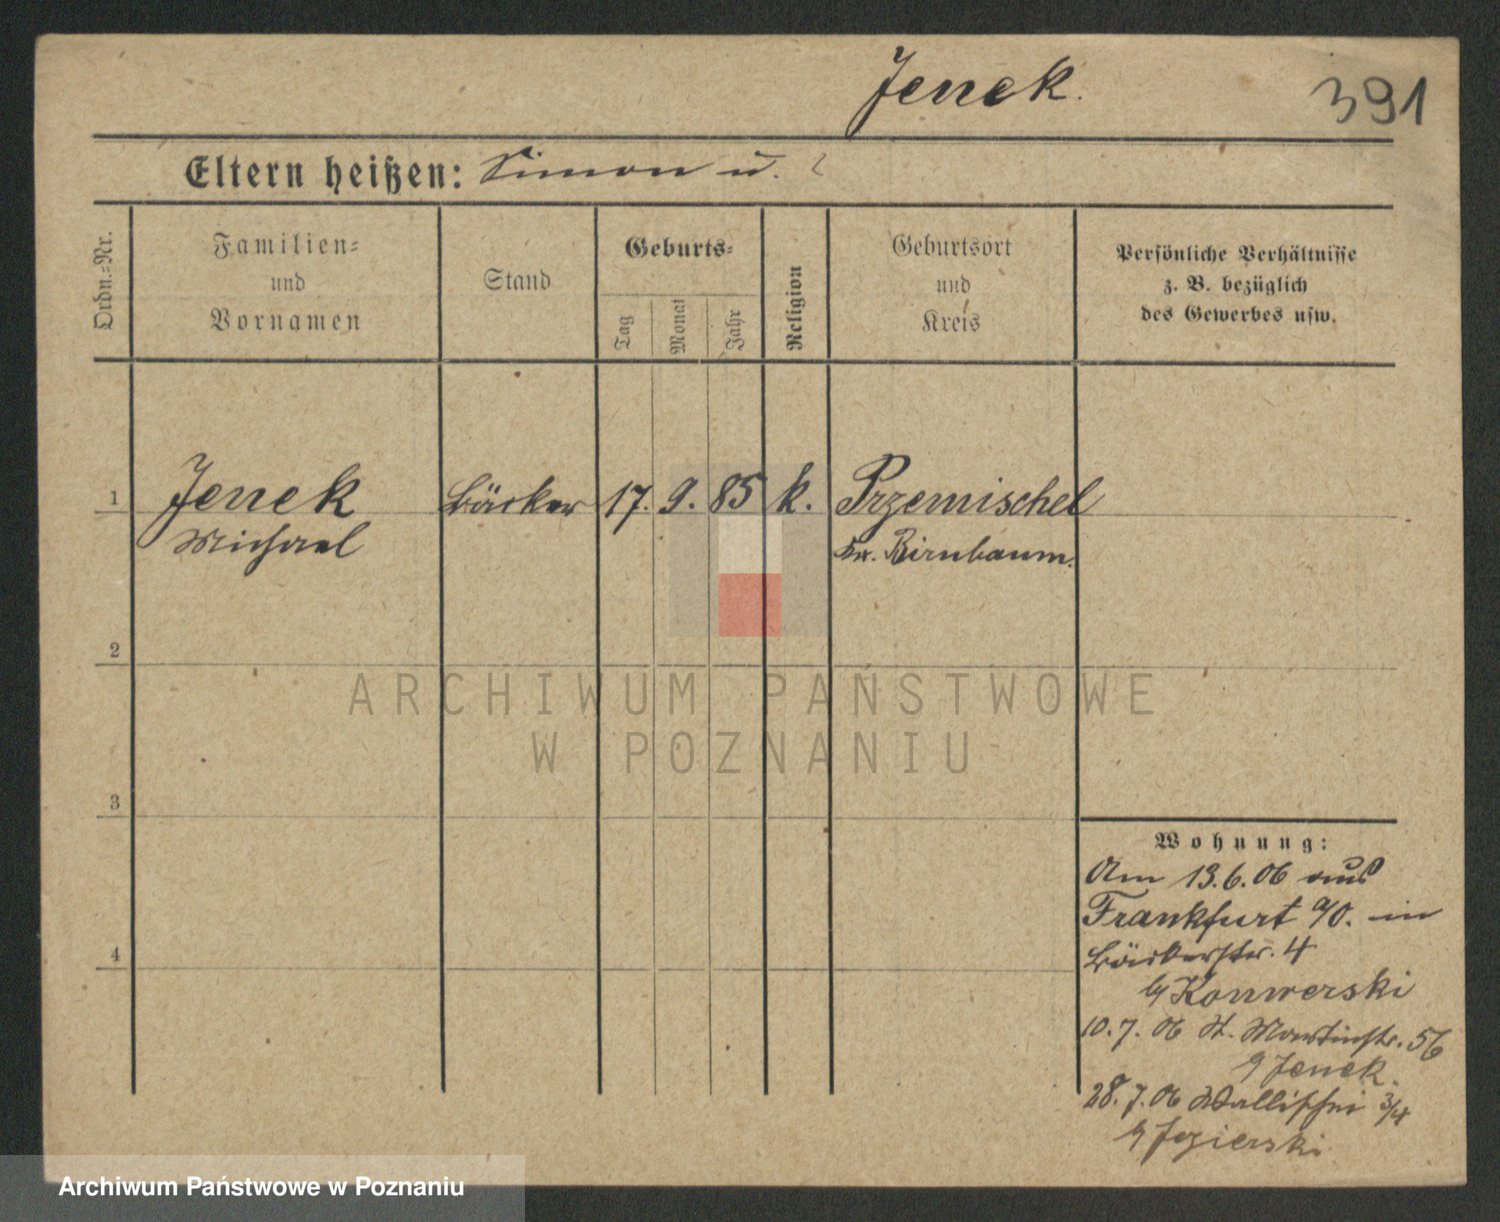 Jenek.
391
Eltern heißen: Simon u. ?
Ordn.=Nr.
Familien=
und
Vornamen
Stand
Geburts=
Tag
Monat
Jahr
Religion
Geburtsort
und
Kreis
Persönliche Verhältnisse
z. B. bezüglich
des Gewerbes usw.
1 Jenek Bäcker 17. 9. 85 k. Przemischel
Michael Kr. Birnbaum.
2
ARCHIWUM PAŃSTWOWE
W POZNANIU
3
Wohnung:
Am 13.6.06 aus
Frankfurt a/O. in
Bäckerstr. 4
b/ Konwerski
4
10.7.06 St. Martinstr. 56
b/ Jenek.
28.7.06 Wallischei 3/4
b/ Jezierski
Archiwum Państwowe w Poznaniu